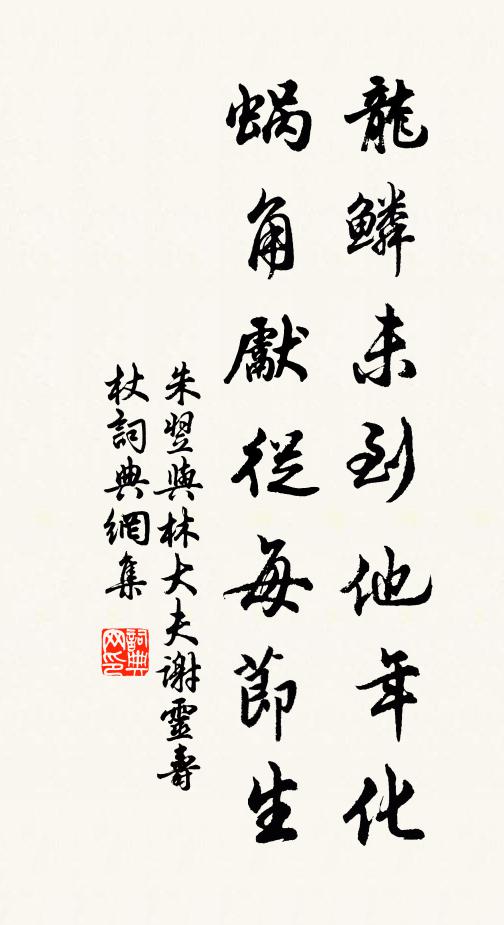 龍鱗未到他年化
蝸角獻從每節生
朱翌與林大夫謝靈壽
杖詞典網集
詞典网印